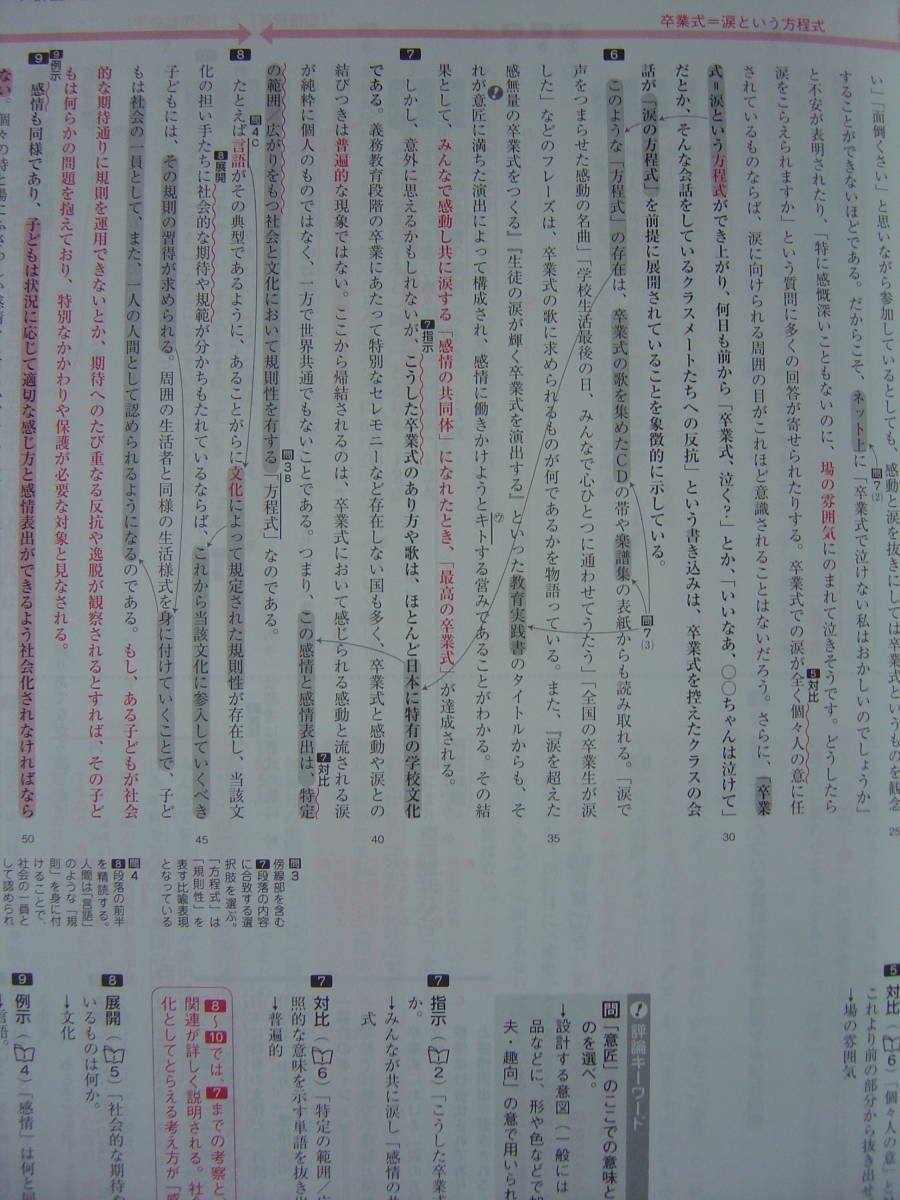 卒業式=涙という方程式
い」「面倒くさい」と思いながら参加しているとしても、感動と涙を抜きにしては卒業式というものを観念
することができないほどである。だからこそ、ネット上に「卒業式で泣けない私はおかしいのでしょうか」
と不安が表明されたり、「特に感慨深いこともないのに、場の雰囲気にのまれて泣きそうです。どうしたら
涙をこらえられますか」という質問に多くの回答が寄せられたりする。卒業式での涙が全く個々人の意に任
されているものならば、涙に向けられる周囲の目がこれほど意識されることはないだろう。さらに、「卒業
式=涙という方程式ができ上がり、何日も前から「卒業式、泣く?」とか、「いいなあ、〇〇ちゃんは泣けて」
だとか、そんな会話をしているクラスメートたちへの反抗」という書き込みは、卒業式を控えたクラスの会
話が「涙の方程式」を前提に展開されていることを象徴的に示している。
6 このような「方程式」の存在は、卒業式の歌を集めたCDの帯や楽譜集の表紙からも読み取れる。「涙で
声をつまらせた感動の名曲」「学校生活最後の日、みんなで心ひとつに通わせてうたう」「全国の卒業生が涙
した」などのフレーズは、卒業式の歌に求められるものが何であるかを物語っている。また、『涙を超えた
感無量の卒業式をつくる』『生徒の涙が輝く卒業式を演出する』といった教育実践書のタイトルからも、そ
れが意匠に満ちた演出によって構成され、感情に働きかけようとキトする営みであることがわかる。その結
果として、みんなで感動し共に涙する「感情の共同体」になれたとき、「最高の卒業式」が達成される。
7 しかし、意外に思えるかもしれないが、こうした卒業式のあり方や歌は、ほとんど日本に特有の学校文化
である。義務教育段階の卒業にあたって特別なセレモニーなど存在しない国も多く、卒業式と感動や涙との
結びつきは普遍的な現象ではない。ここから帰結されるのは、卒業式において感じられる感動と流される涙
が純粋に個人のものではなく、一方で世界共通でもないことである。つまり、この感情と感情表出は、特定
の範囲/広がりをもつ社会と文化において規則性を有する「方程式」なのである。
8 たとえば言語がその典型であるように、あることがらに文化によって規定された規則性が存在し、当該文
化の担い手たちに社会的な期待や規範が分かちもたれているならば、これから当該文化に参入していくべき
子どもには、その規則の習得が求められる。周囲の生活者と同様の生活様式を身に付けていくことで、子ど
もは社会の一員として、また、一人の人間として認められるようになるのである。もし、ある子どもが社会
的な期待通りに規則を運用できないとか、期待へのたび重なる反抗や逸脱が観察されるとすれば、その子ど
もは何らかの問題を抱えており、特別なかかわりや保護が必要な対象と見なされる。
9 感情も同様であり、子どもは状況に応じて適切な感じ方と感情表出ができるよう社会化されなければなら
ない。
問7(2)
5 対比
問7(3)
ウ
7 指示
7 対比
問3B
問4C
8 展開
9 例示
25
30
35
40
45
50
問3
傍線部を含む
7段落の内容
に合致する選
択肢を選ぶ。
「方程式」は
「規則性」を
表す比喩表現
となっている
問4
8段落の前半
を精読する。
人間は「言語」
のような「規
則」を身に付
けることで、
社会の一員と
して認められ
5 対比(6)「個々人の意」と
これより前の部分から抜き出せ
→場の雰囲気
! 評論キーワード
問「意匠」のここでの意味と
のを選べ。
→設計する意図(一般には
品などに、形や色などで
夫・趣向」の意で用いられ
7 指示(2)「こうした卒業
か。
→みんなが共に涙し「感情の
式
7 対比(6)「特定の範囲/
照的な意味を示す単語を抜き
→普遍的
8〜10では、7までの考察と
関連が詳しく説明される。社
化としてとらえる考え方が「感
8 展開(5)「社会的な期待や
いるものは何か。
→文化
9 例示(4)「感情」は何と
→言語。